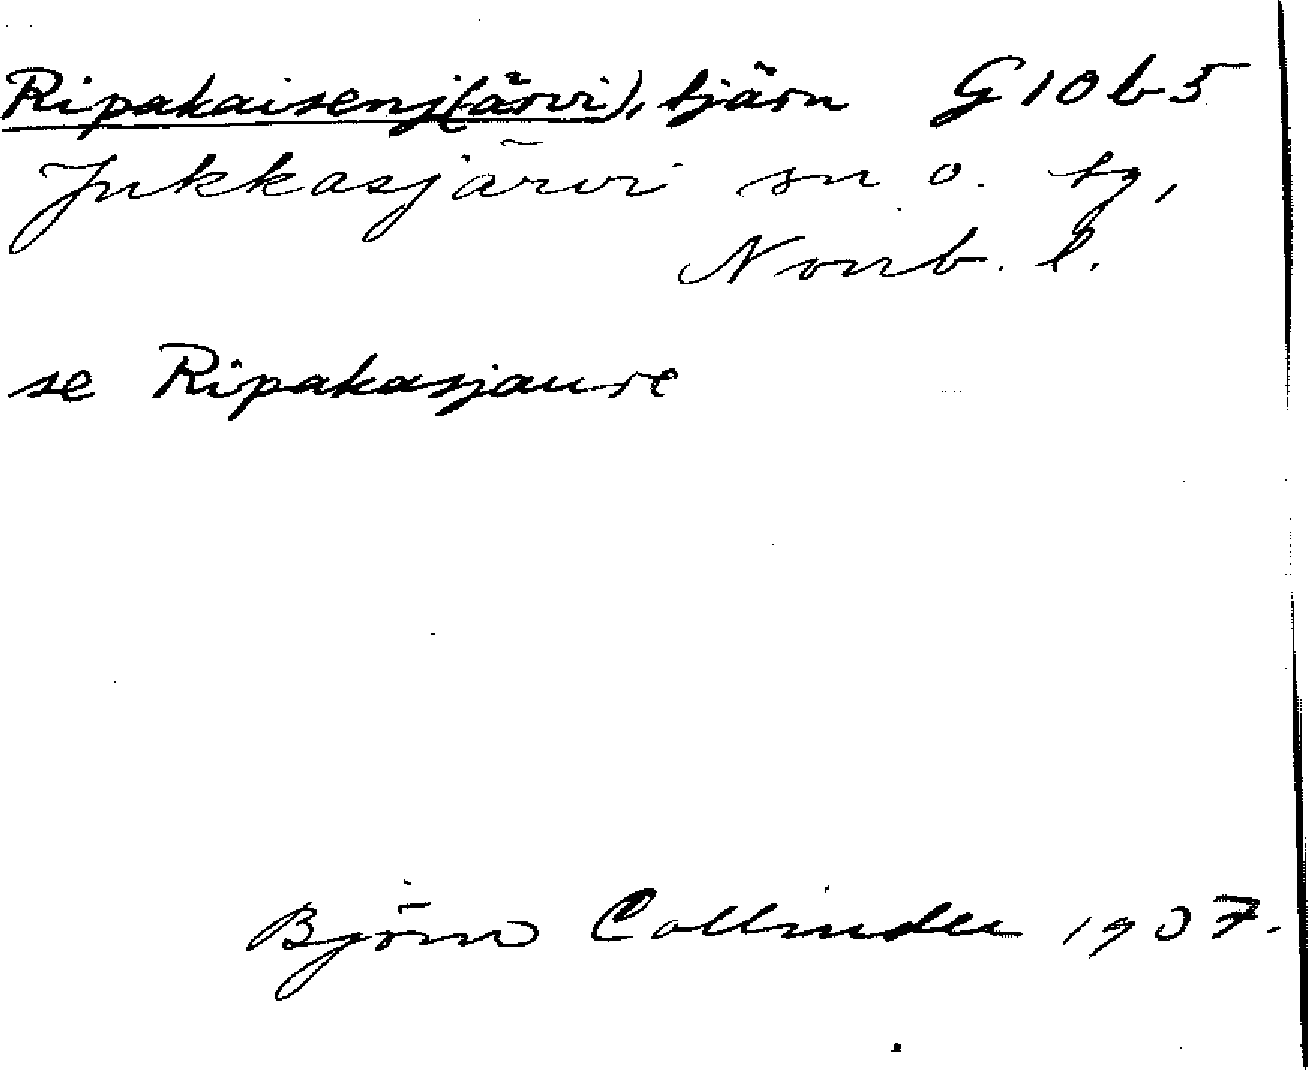 Ripakaisenj(ärvi), tjärn G10b5
Jukkasjärvi sn o. tg,
Norrb. l.
se Ripakasjaure
Björn Collinder 1937.